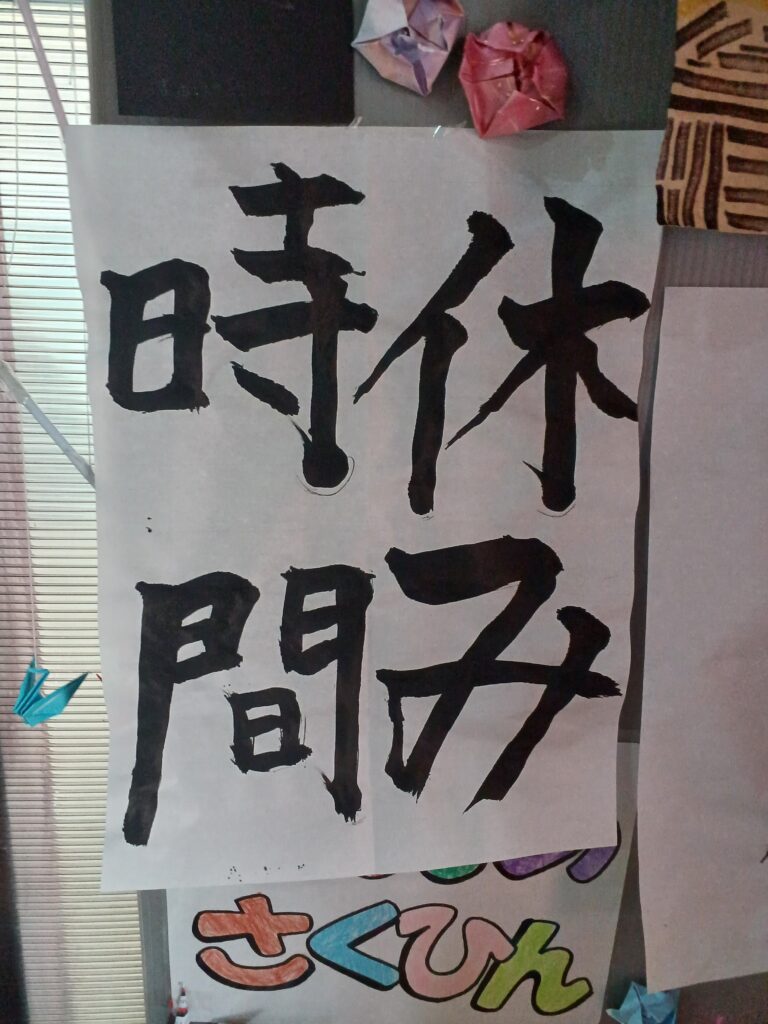 休み
時間
さくひん